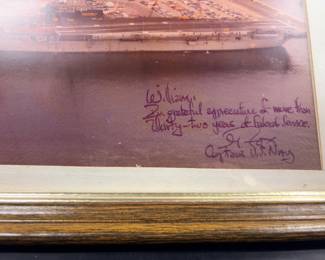 William,
In grateful appreciation of more than
thirty-two years of Federal Service.
Captain U.S. Navy